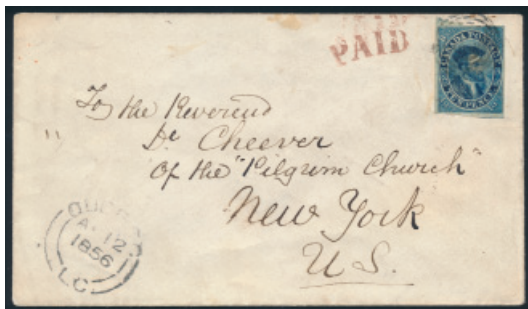 PAID
CANADA POSTAGE
TEN PENCE
To the Reverend
Dr Cheever
Of the "Pilgrim Church"
New York
U.S.
QUEBEC
12
1856
L.C.